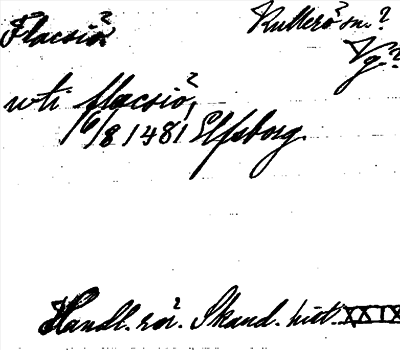 Flacsiö Kullerö sn.?
Vg.?
uti Flacsiö,
16/8 1481 Elfsborg.
Handl. rör. Skand. hist. XXIX